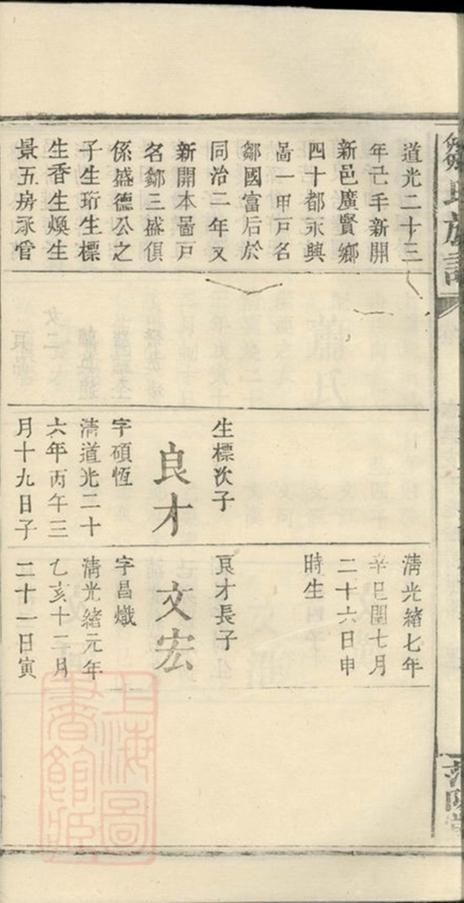 鄒氏族譜
道光二十三
年己手新開
新邑廣賢鄉
四十都永興
啚一甲戶名
鄒國富后於
同治二年又
新開本啚戶
名鄒三盛俱
係盛德公之
子生珩生標
生香生煥生
景五房承管
生標次子
良才
字碩恆
清道光二十
六年丙午三
月十九日子
清光緒七年
辛巳閏七月
二十六日申
時生
良才長子
文宏
字昌熾
清光緒元年
乙亥十二月
二十一日寅
范陽堂
上海圖書館藏